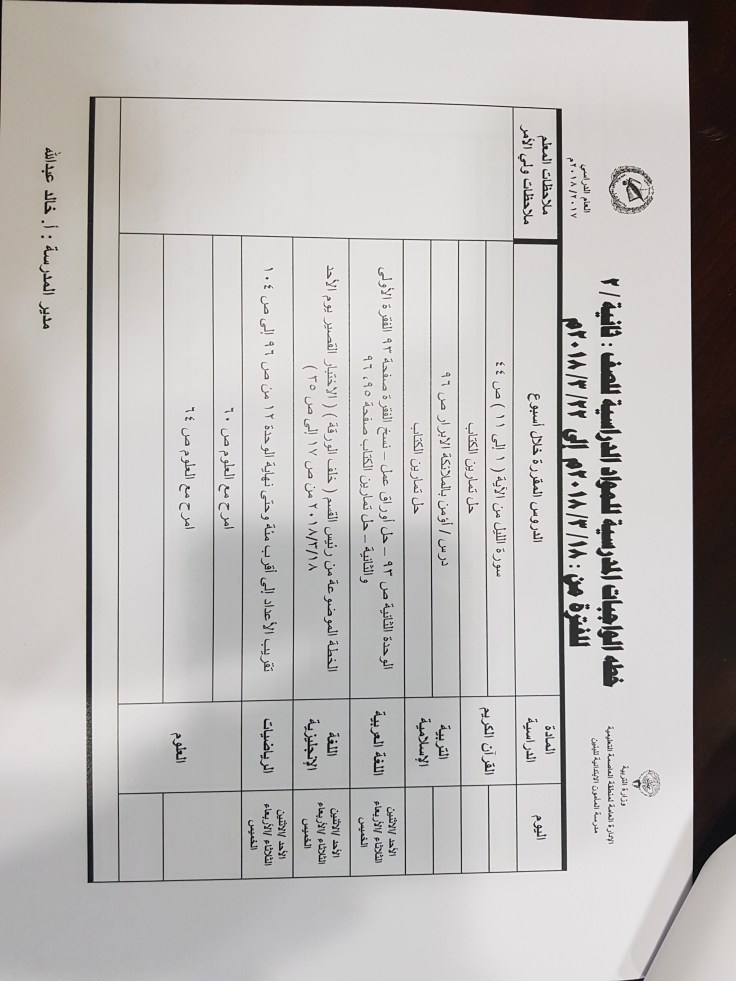 وزارة التربية
الإدارة العامة لمنطقة العاصمة التعليمية
مدرسة المأمون الابتدائية للبنين
خطه الواجبات المدرسية للمواد الدراسية للصف : ثانية / ٢
للفترة من : ١٨ /٣ /٢٠١٨م إلى ٢٢ /٣ /٢٠١٨م
العام الدراسي
٢٠١٨/٢٠١٧م
اليوم
المادة الدراسية
الدروس المقررة خلال أسبوع
ملاحظات المعلم
ملاحظات ولي الأمر
القرآن الكريم
سورة الليل من الآية ( ١ إلى ١١ ) ص ٤٤
حل تمارين الكتاب
التربية الإسلامية
درس / أؤمن بالملائكة الابرار ص ٩٦
حل تمارين الكتاب
الأحد /الاثنين
الثلاثاء /الأربعاء
الخميس
اللغة العربية
الوحدة الثانية ص ٩٣ – حل أوراق عمل – نسخ الفقرة صفحة ٩٣ الفقرة الأولى
والثانية – حل تمارين الكتاب صفحة ٩٥، ٩٦
الأحد /الاثنين
الثلاثاء /الأربعاء
الخميس
اللغة الإنجليزية
الخطة الموضوعة من رئيس القسم ( خلف الورقة ) ( الاختبار القصير يوم الأحد
٢٠١٨/٣/١٨ من ص ١٧ إلى ص ٢٥ )
الأحد /الاثنين
الثلاثاء /الأربعاء
الخميس
الرياضيات
تقريب الأعداد إلى أقرب مئة وحتى نهاية الوحدة ١٢ من ص ٩٦ إلى ص ١٠٤
العلوم
امرح مع العلوم ص ٦٠
امرح مع العلوم ص ٦٤
مدير المدرسة : أ. خالد عبدالله